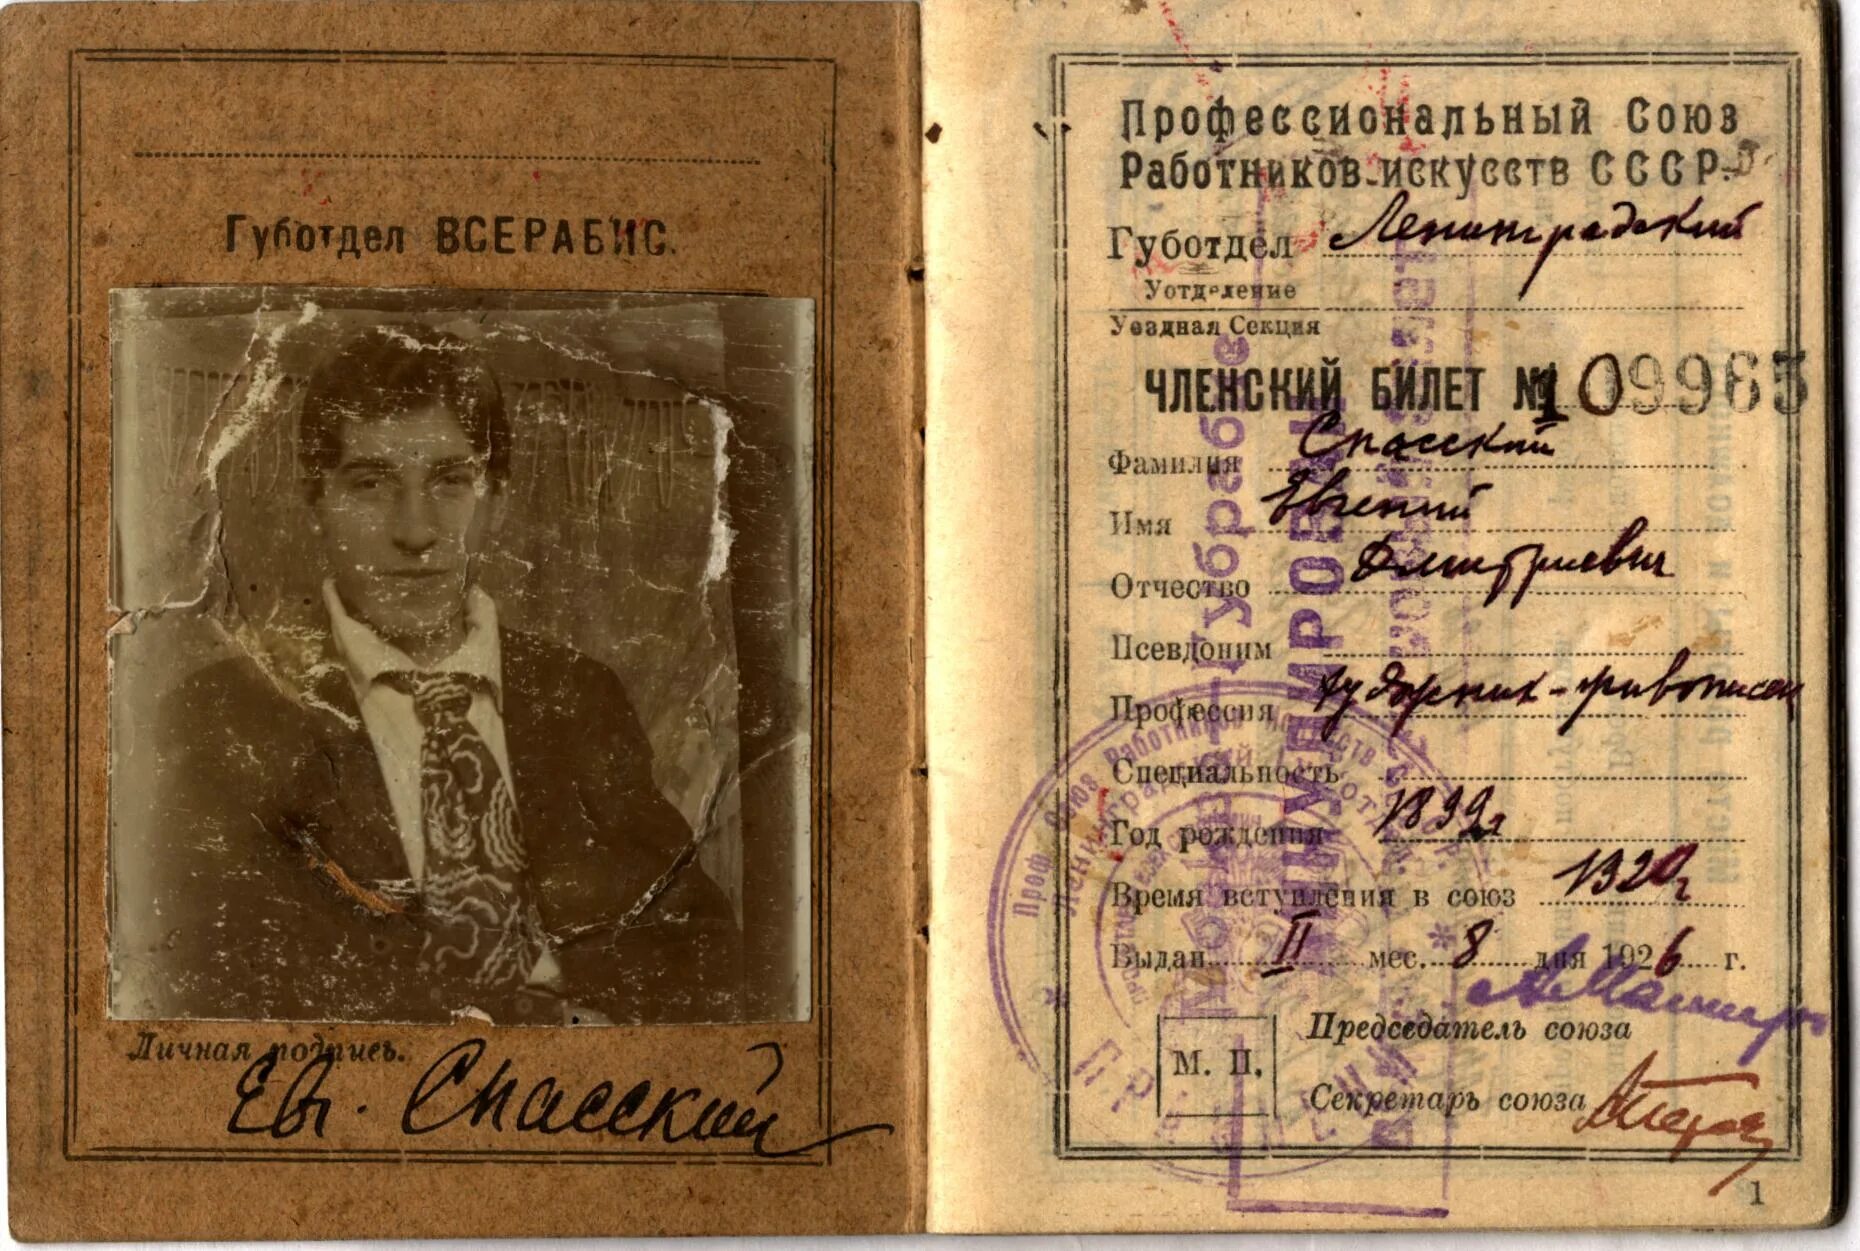 Губотдел ВСЕРАБИС.
Личная подпись.
Евг. Спасский
Профессиональный Союз
Работников искусств СССР.
Губотдел Ленинградский
Уотделение
Уездная Секция
ЧЛЕНСКИЙ БИЛЕТ № 109965
Фамилия Спасский
Имя Евгений
Отчество Дмитриевич
Псевдоним
Профессия художник-живописец
Специальность
Год рождения 1899г
Время вступления в союз 1920г
Выдан II мес. 8 дня 1926 г.
Председатель союза
М. П.
Секретарь союза
1